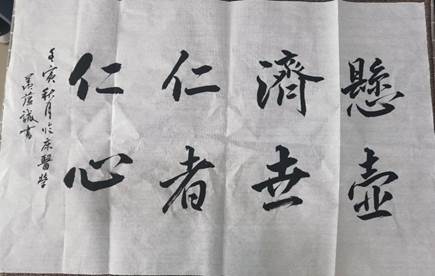 懸壺
濟世
仁者
仁心
壬寅秋月於床醫學
書